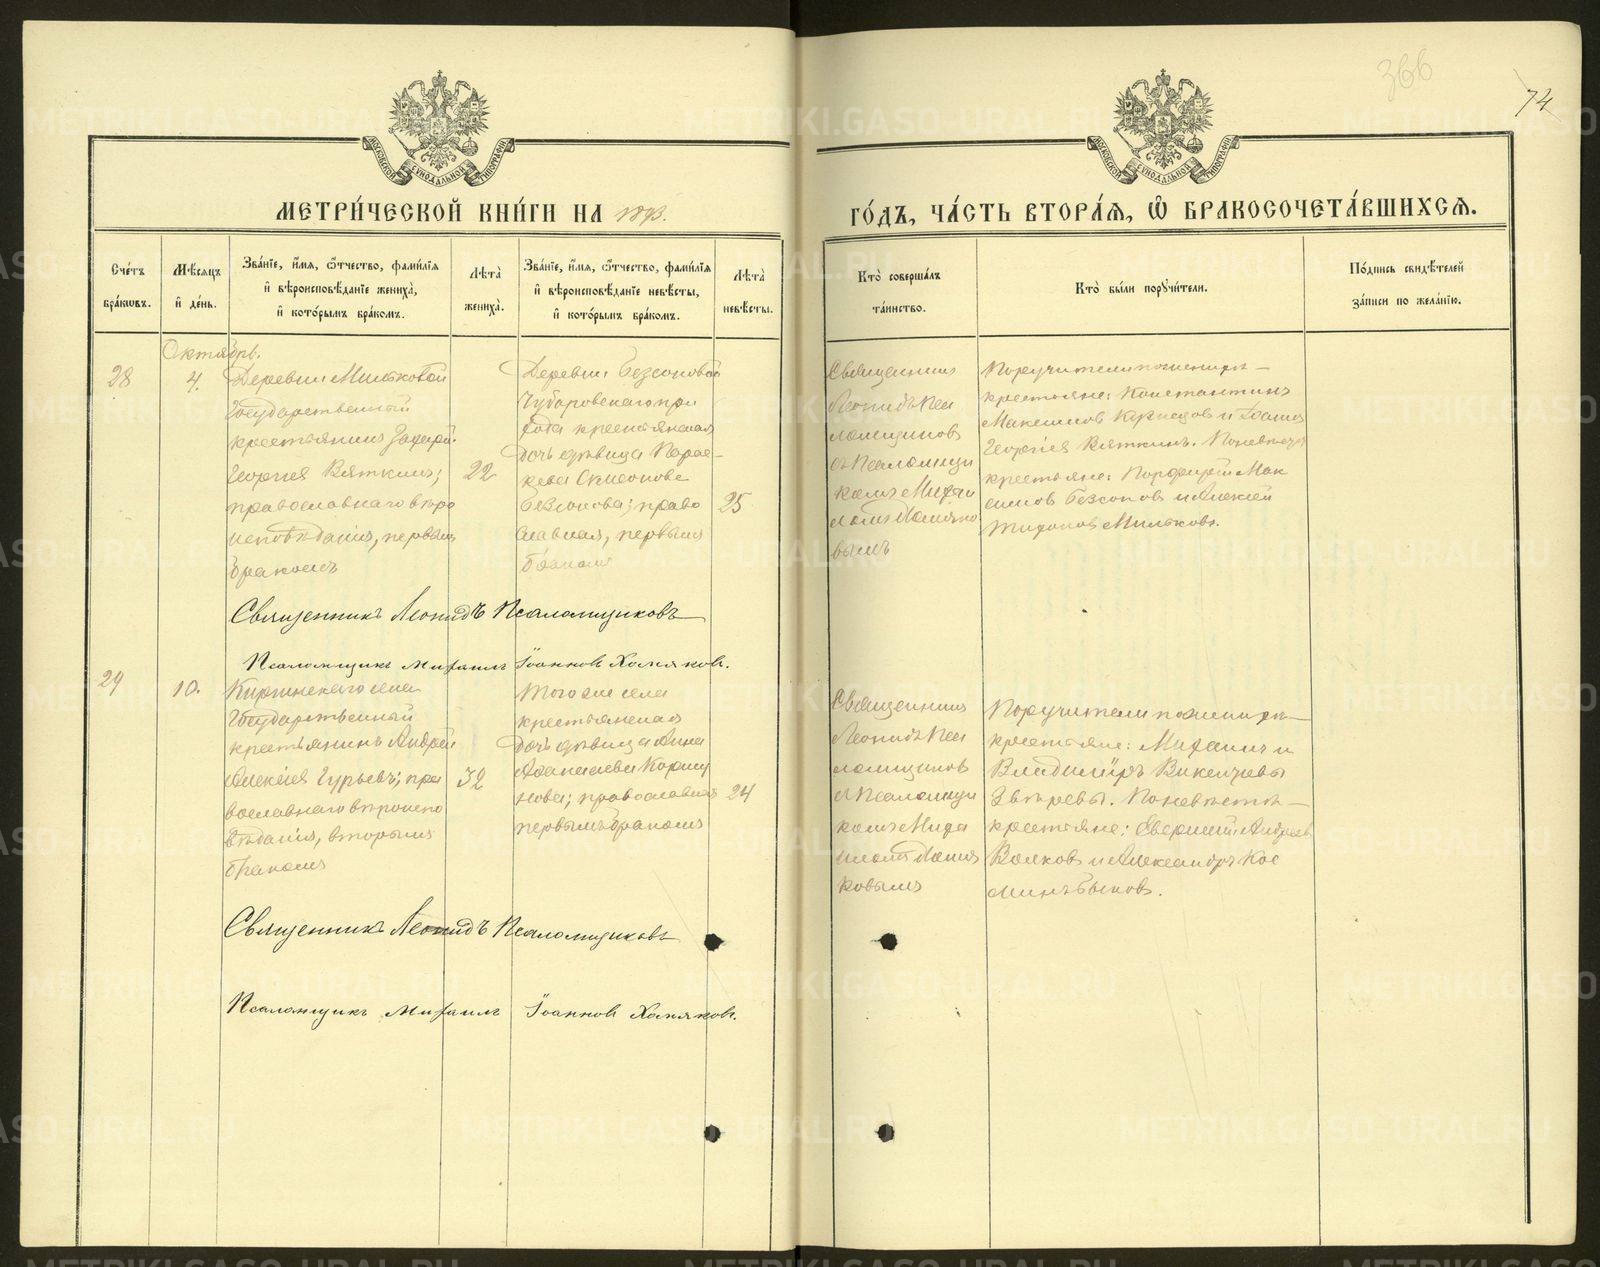 366
74
МОСКОВСКОЙ СѴНОДАЛЬНОЙ ТИПОГРАФІИ
МОСКОВСКОЙ СѴНОДАЛЬНОЙ ТИПОГРАФІИ
МЕТРИ́ЧЕСКОЙ КНИ́ГИ НА 1893.
ГО́ДЪ, ЧА́СТЬ ВТОРА́Ѧ, Ѽ БРАКОСОЧЕТА́ВШИХСѦ.
Сче́тъ
бра́ковъ.
Мѣ́сяцъ
и҆ де́нь.
Зва́нїе, и҆́мѧ, ѻ҆́тчество, фамі́лїѧ
и҆ вѣроисповѣ́данїе жениха̀,
и҆ кото́рымъ бра́комъ.
Лѣта̀
жениха̀.
Зва́нїе, и҆́мѧ, ѻ҆́тчество, фамі́лїѧ
и҆ вѣроисповѣ́данїе невѣ́сты,
и҆ кото́рымъ бра́комъ.
Лѣта̀
невѣ́сты.
Кто̀ соверша́лъ
та́инство.
Кто̀ бы́ли порꙋчи́тели.
По́дпись свидѣ́телей
за́писи по жела́нїю.
Октябрь.
28
4.
Деревни Мильковой
Государственный
крестьянинъ
Георгіев Вяткинъ;
православнаго вѣро
исповѣданія, первымъ
бракомъ
22
Деревни Безсоновой
Чубаровскаго при
хода крестьянская
дочь дѣвица Парас-
кева Симеонова
Безсонова; право
славная, первымъ
бракомъ
25
Священникъ
Леонидъ Пса
ломщиковъ
съ Псаломщи
комъ Миха
иломъ Хомяко
вымъ
Поручители по женихѣ
крестьяне: Константинъ
Максимов Кузнецов и Іоаннъ
Георгіев Вяткинъ. По невѣстѣ
крестьяне: Порфирій Мак
симов Безсонов и Алексѣй
Тихонов Мильковъ.
Священникъ Леонидъ Псаломщиковъ
Псаломщикъ Михаилъ Іоаннов Хомяковъ.
29
10.
Киргинскаго села
Государственный
крестьянинъ Андрей
Алексіев Гурьевъ; пра
вославнаго вѣроиспо
вѣданія, вторымъ
бракомъ
32
Того же села
крестьянская
дочь дѣвица Анна
Аѳанасьева
нова; православная
первымъ бракомъ
24
Священникъ
Леонидъ Пса
ломщиковъ
съ Псаломщи
комъ Миха
иломъ Хомя
ковымъ
Поручители по женихѣ
крестьяне: Михаилъ и
Владиміръ Викентьевы
Звѣревы. По невѣстѣ
крестьяне: Андреев
Волков и Александръ Кос
минъ Быковъ.
Священникъ Леонидъ Псаломщиковъ
Псаломщикъ Михаилъ Іоаннов Хомяковъ.
METRIKI.GASO-URAL.RU